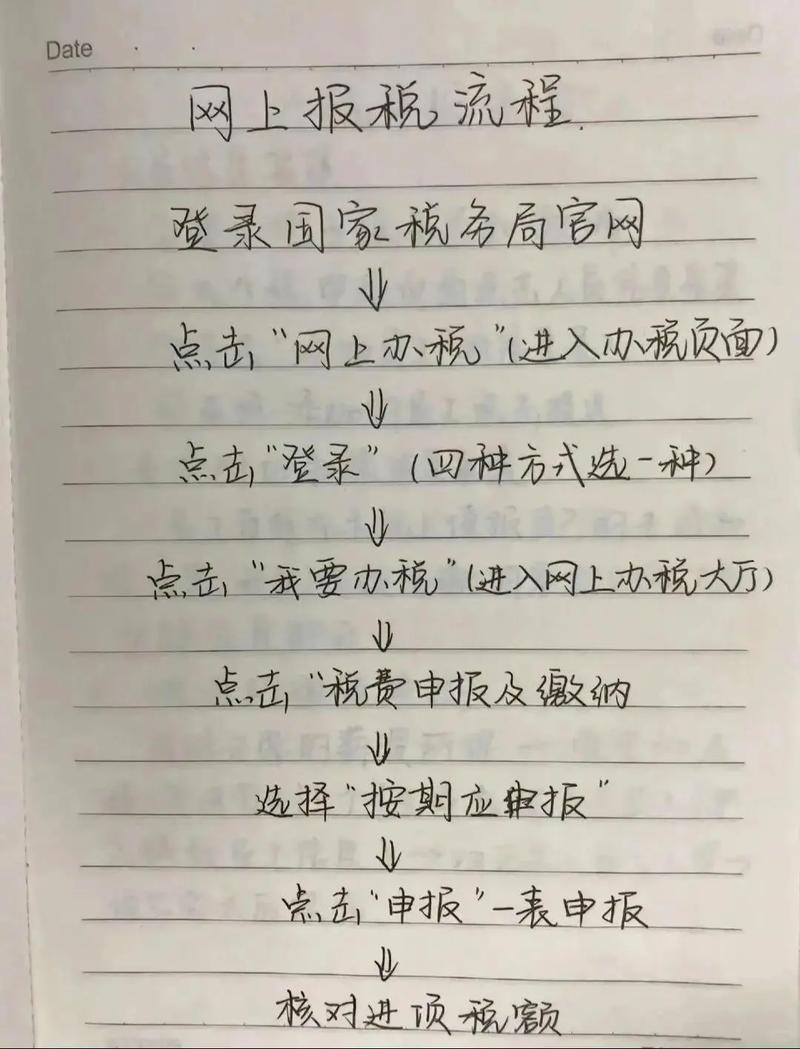 Date
网上报税流程.
登录国家税务局官网
⇓
点击"网上办税"(进入办税页面)
⇓
点击"登录"(四种方式选一种)
⇓
点击"我要办税"(进入网上办税大厅)
⇓
点击"税费申报及缴纳
⇓
选择"按期应申报"
⇓
点击"申报"一表申报
⇓
核对进项税额